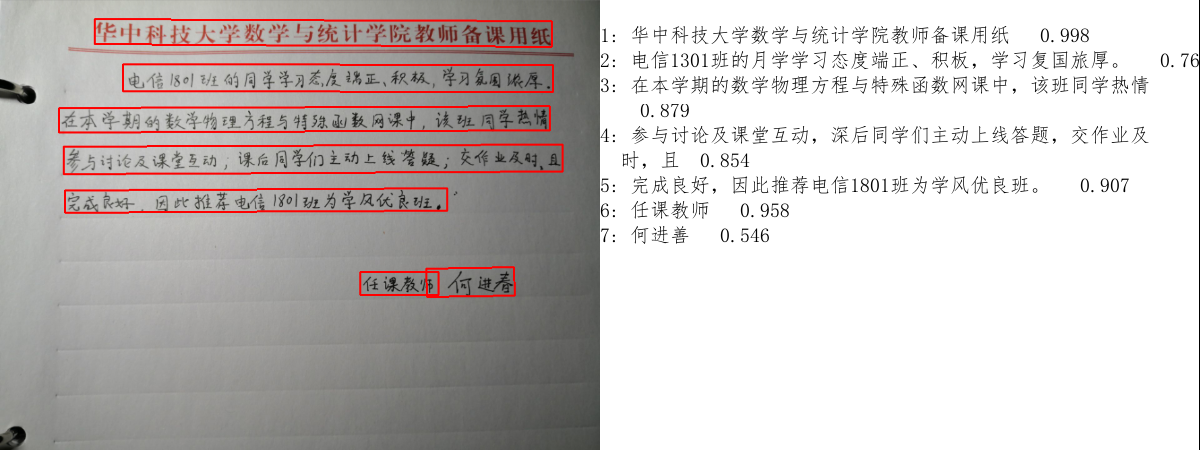 华中科技大学数学与统计学院教师备课用纸
电信1801班的同学学习态度端正、积极,学习氛围浓厚。
在本学期的数学物理方程与特殊函数网课中,该班同学热情
参与讨论及课堂互动;课后同学们主动上线答疑;交作业及时、且
完成良好,因此推荐电信1801班为学风优良班。
任课教师 何进春
1: 华中科技大学数学与统计学院教师备课用纸 0.998
2: 电信1301班的月学学习态度端正、积板，学习复国旅厚。 0.76
3: 在本学期的数学物理方程与特殊函数网课中，该班同学热情
0.879
4: 参与讨论及课堂互动，深后同学们主动上线答题，交作业及
时，且 0.854
5: 完成良好，因此推荐电信1801班为学风优良班。 0.907
6: 任课教师 0.958
7: 何进善 0.546